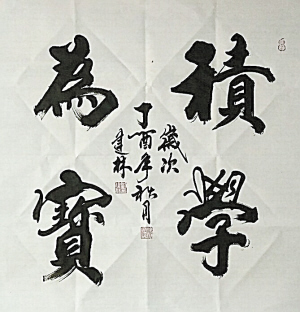 積學
為寶
歲次
丁酉年秋月
建林